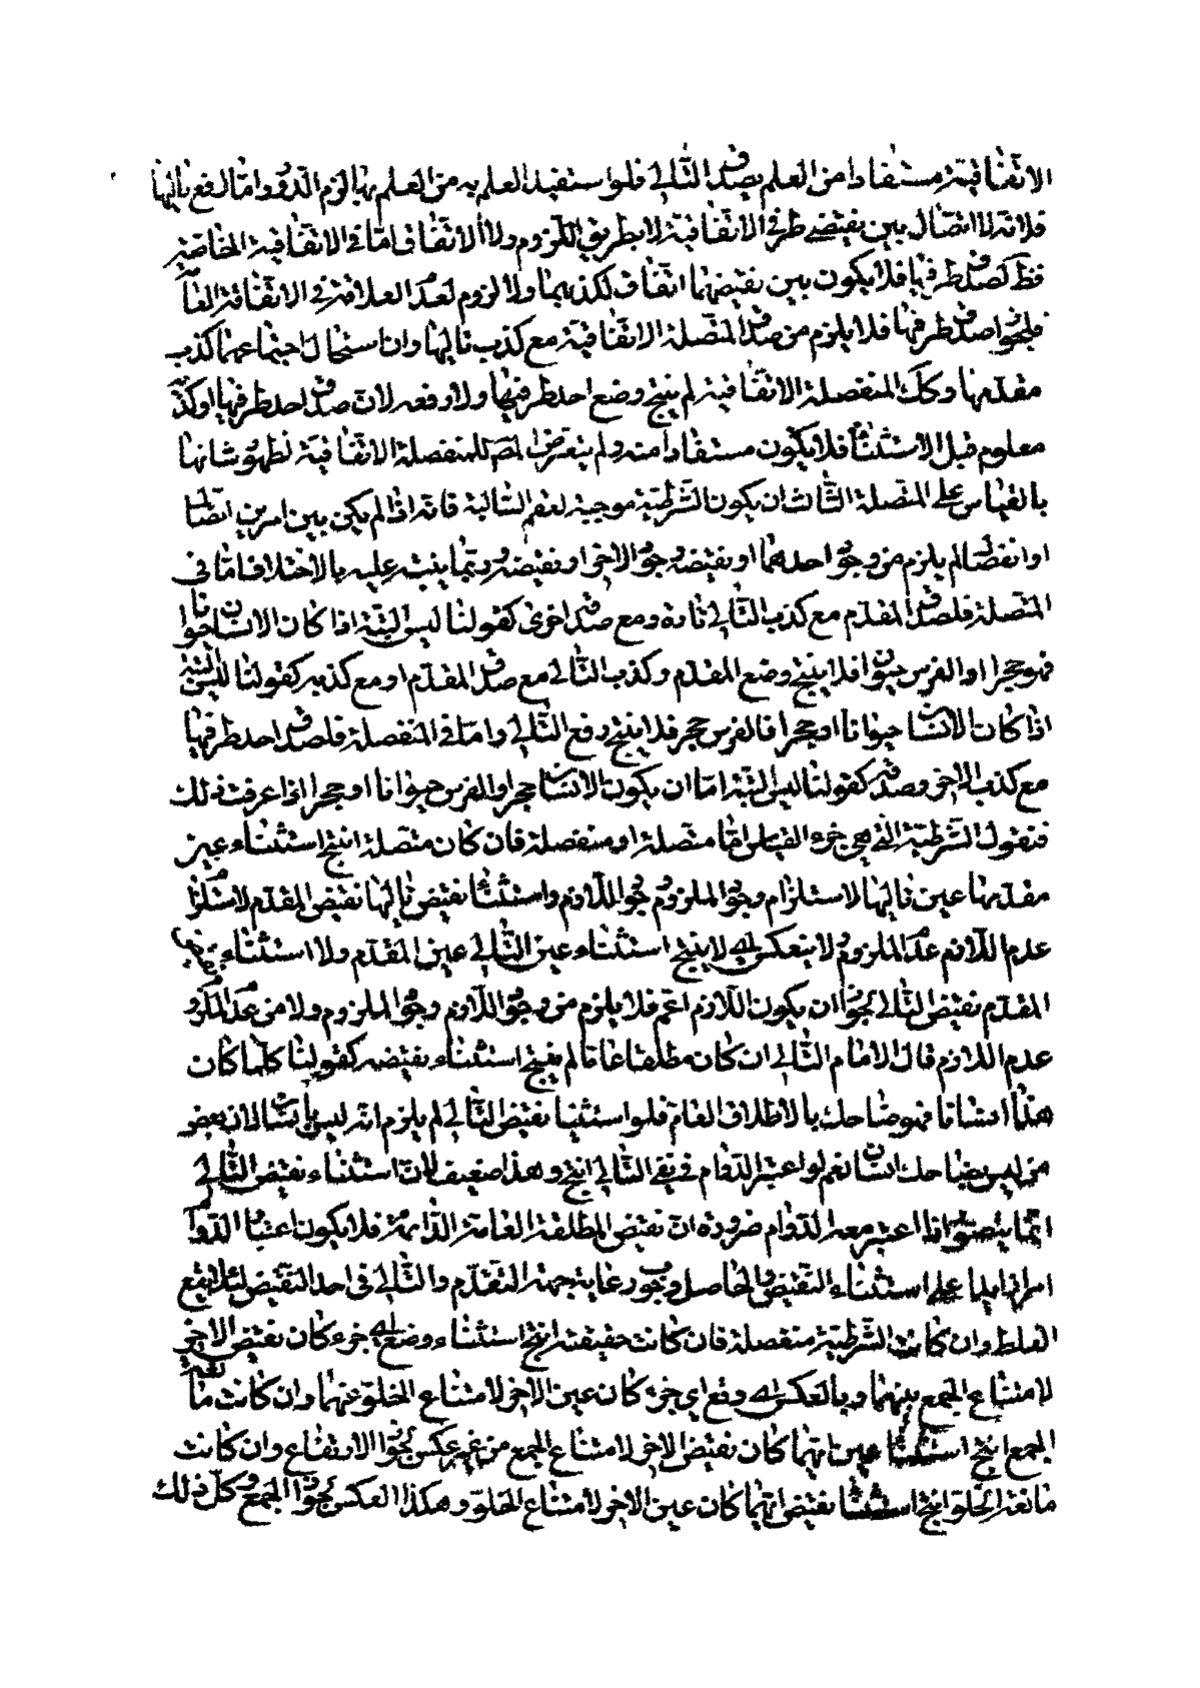 الاتفاقية مستفادا من العلم بصدق التالي فلو استفيد العلم به من العلم بها لزم الدور واما لرفع تاليها
فلانه لا اتصال بين نقيضي طرفي الاتفاقية لا بطريق اللزوم ولا الاتفاق اما في الاتفاقية الخاصة
فظ لصدق طرفيها فلا يكون بين نقيضهما اتفاق لكذبهما ولا لزوم لعدم العلاقة وفي الاتفاقية العامة
فلجواز صدق طرفيها فلا يلزم من صدق المتصلة الاتفاقية مع كذب تاليها وان استحال اجتماعهما كذب
مقدمها وكك المنفصلة الاتفاقية لم ينتج وضع احد طرفيها ولا رفعه لان صدق احد طرفيها او كذبه
معلوم قبل الاستثناء فلا يكون مستفادا منه ولم يتعرض المص للمنفصلة الاتفاقية لظهور شانها
بالقياس على المتصلة الثالث ان يكون الشرطية موجبة لعقم السالبة فانه اذا لم يكن بين امرين اتصال
او انفصال لم يلزم من وجود احدهما او نقيضه وجود الاخر او نقيضه وربما ينبه عليه بالاختلاف اما في
المتصلة فلصدق المقدم مع كذب التالي تارة ومع صدقه اخرى كقولنا ليس البتة اذا كان الانسان حيوانا
فهو حجر او الفرس حيوان فلا ينتج وضع المقدم وكذب التالي مع صدق المقدم او مع كذبه كقولنا ليس البتة
اذا كان الانسان حيوانا او حجرا فالفرس حجر فلا ينتج رفع التالي واما في المنفصلة فلصدق احد طرفيها
مع كذب الاخر وصدقه كقولنا ليس البتة اما ان يكون الانسان حجرا والفرس حيوانا او حجرا اذا عرفت ذلك
فنقول الشرطية التي هي جزء القياس اما متصلة او منفصلة فان كان متصلة انتج استثناء عين
مقدمها عين تاليها لاستلزام وجود الملزوم وجود اللازم واستثناء نقيض تاليها نقيض المقدم لاستلزام
عدم اللازم عدم الملزوم ولا ينعكس اي لا ينتج استثناء عين التالي عين المقدم ولا استثناء نقيض
المقدم نقيض التالي لجواز ان يكون اللازم اعم فلا يلزم من وجود اللازم وجود الملزوم ولا من عدم الملزوم
عدم اللازم قال الامام التالي ان كان مطلقا عاما لم ينتج استثناء نقيضه كقولنا كلما كان
هذا انسانا فهو ضاحك بالاطلاق العام فلو استثنينا نقيض التالي لم يلزم انه ليس بانسان لان بعض
من ليس بضاحك انسان نعم لو اعتبر الدوام في نفي التالي انتج وهذا ضعيف لان استثناء نقيض التالي
انما يتصور اذا اعتبر معه الدوام ضرورة ان نقيض المطلقة العامة الدائمة فلا يكون اعتبار الدوام
امرا زايدا على استثناء النقيض والحاصل وجوب رعاية جهة المقدم والتالي في اخذ النقيض لئلا يقع
الغلط وان كانت الشرطية منفصلة فان كانت حقيقية انتج استثناء وضع اي جزء كان نقيض الاخر
لامتناع الجمع بينهما وبالعكس اي رفع اي جزء كان عين الاخر لامتناع الخلو عنهما وان كانت مانعة
الجمع انتج استثناء عين ايهما كان نقيض الاخر لامتناع الجمع من غير عكس لجواز الارتفاع وان كانت
مانعة الخلو انتج استثناء نقيض ايهما كان عين الاخر لامتناع الخلو وهكذا العكس لجواز الجمع وكل ذلك